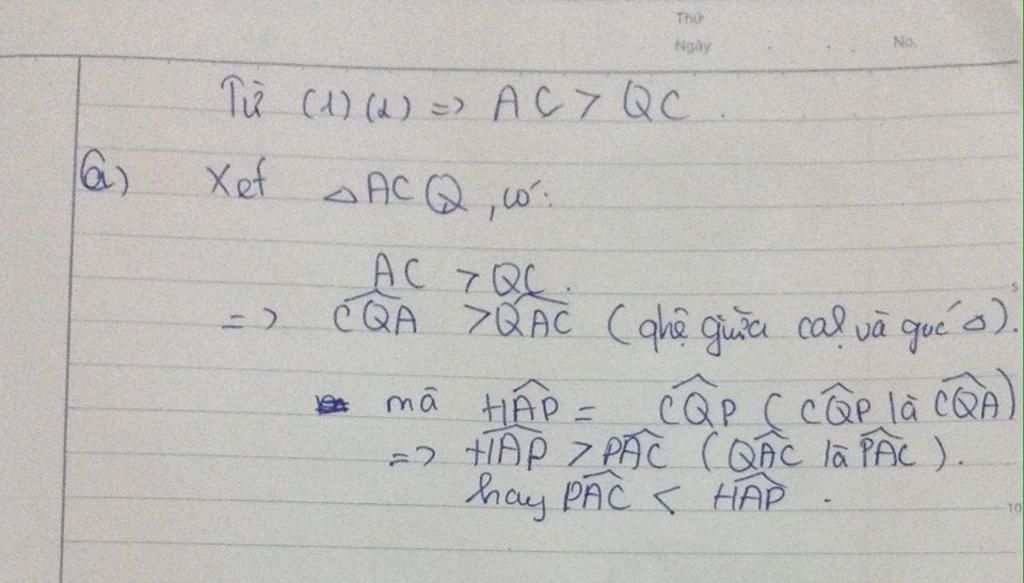 Thứ
Ngày . . . No.
Từ (1)(2) => AC > QC.
a) Xet △ACQ, có:
AC > QC.
=> CQA > QAC (qhệ giữa cạl và guc △).
mã HAP = CQP (CQP là CQA)
=> HAP > PAC (QAC là PAC).
hay PAC < HAP.
5
10